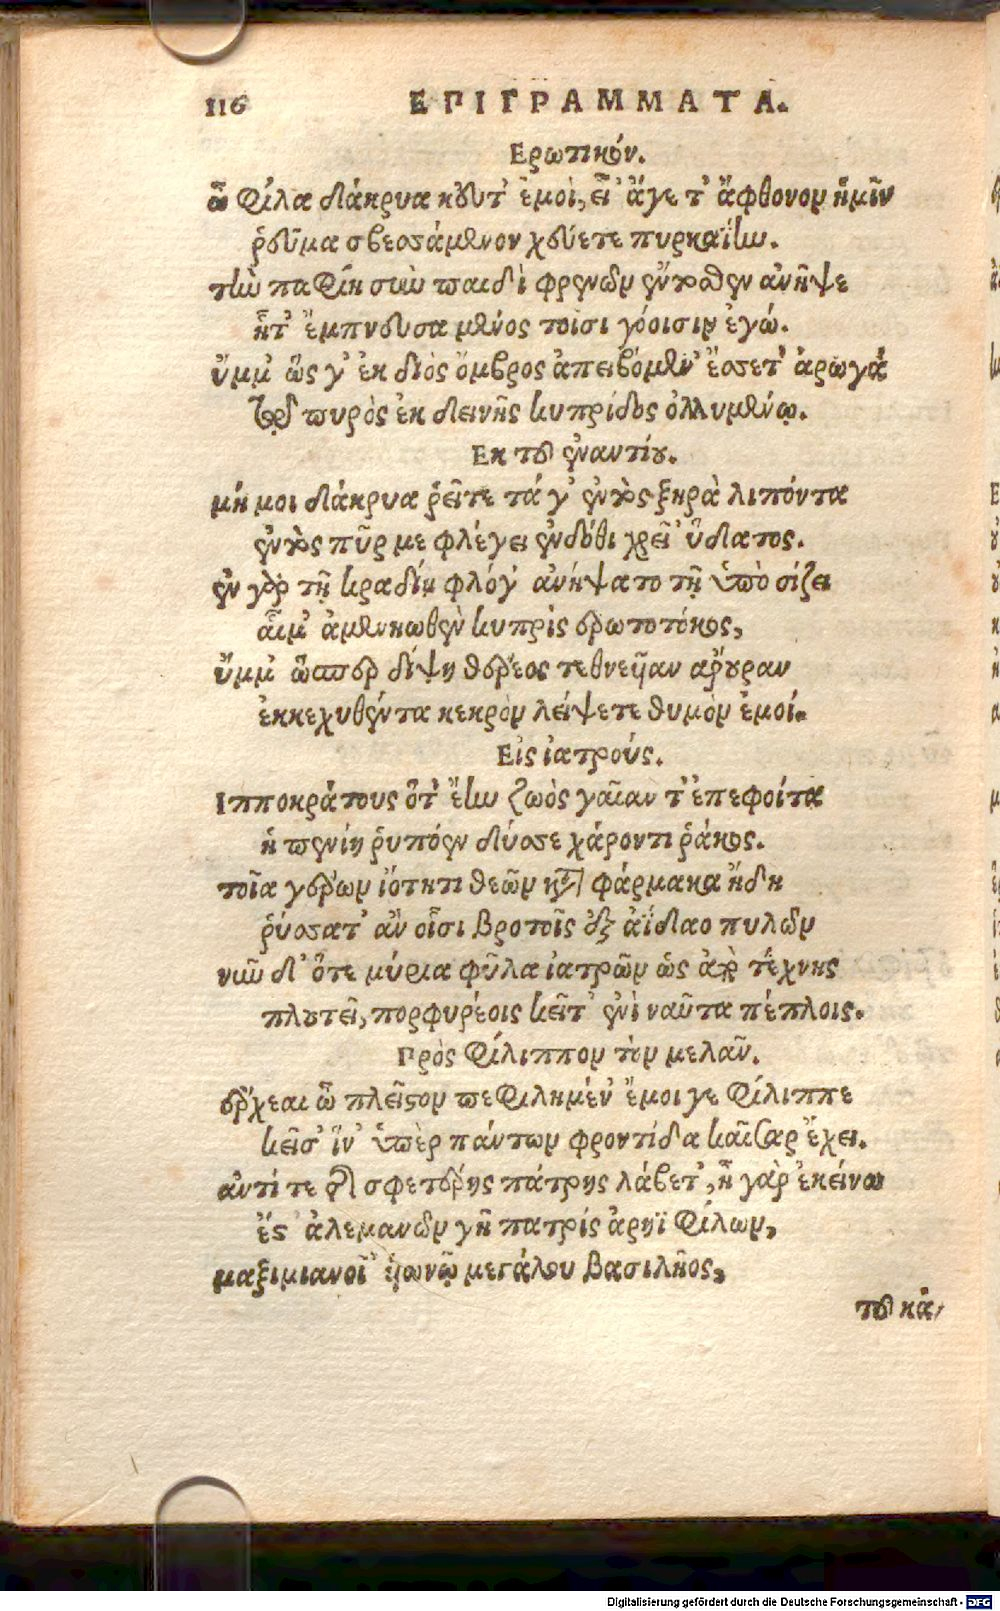 116 ΕΠΙΓΡΑΜΜΑΤΑ.
Ερωτικόν.
ὦ φίλα δάκρυα κοῦτ' ἐμοὶ, εἶ' ἄγετ' ἄφθονον ἡμῖν
ῥεῦμα σβεσσάμενον χεύετε πυρκαϊήν.
τὴν παφίη σὺν παιδὶ φρενῶν ἔντοσθεν ἀνῆψε
ἥτ' ἔμπνουσα μένος τοῖσι γόοισιν ἐγώ.
ὔμμ' ὥς γ' ἐκ διὸς ὄμβρος ἀπειβόμεν' ἔσσετ' ἀρωγὰ
πυρὸς ἐκ δεινῆς κυπρίδος ὀλλυμένῳ.
Εκ τοῦ ἐναντίου.
μή μοι δάκρυα ῥεῖτε τά γ' ἐντὸς ξηρὰ λιπόντα
ἐντὸς πῦρ με φλέγει ἔνδοθι χρεῖ' ὕδατος.
ἐν γὰρ τῇ κραδίῃ φλόγ' ἀνήψατο τῇ ὑπὸ σίζει
αἷμ' ἀμενηνωθὲν κυπρὶς ἐρωτοτόκος,
ὔμμ' ὥσπερ δίψῃ θέρεος τεθνεῖαν ἄρουραν
ἐκκεχυθέντα νεκρὸν λείψετε θυμὸν ἐμοί.
Εἰς ἰατρούς.
Ιπποκράτους ὅτ' ἔην ζωὸς γαῖαν τ' ἐπεφοίτα
ἡ πενίη ῥυπόεν δύσσε χάροντι ῥάκος.
τοῖα γέρων ἰότητι θεῶν κατὰ φάρμακα ἤδη
ῥύσσατ' ἂν οἷσι βροτοῖς ἐξ ἀΐδαο πυλῶν
νῦν δ' ὅτε μύρια φῦλα ἰατρῶν ὡς ἀπὸ τέχνης
πλουτεῖ, πορφυρέοις κεῖτ' ἐνὶ ναῦτα πέπλοις.
Πρὸς Φίλιππον τὸν μελαν.
ἔρχεαι ὦ πλεῖστον πεφιλημέν' ἔμοιγε Φίλιππε
κεῖσ' ἵν' ὑπὲρ πάντων φροντίδα καῖσαρ ἔχει.
ἀντί τε σφετέρης πάτρης λάβετ', ἦ γὰρ ἐκείνω
ἔς ἀλεμανῶν γῆ πατρίς ἀρηῒ φίλων,
μαξιμιανοῖ' υἱωνῷ μεγάλου βασιλῆος,
τοῦ κά-
Digitalisierung gefördert durch die Deutsche Forschungsgemeinschaft - DFG